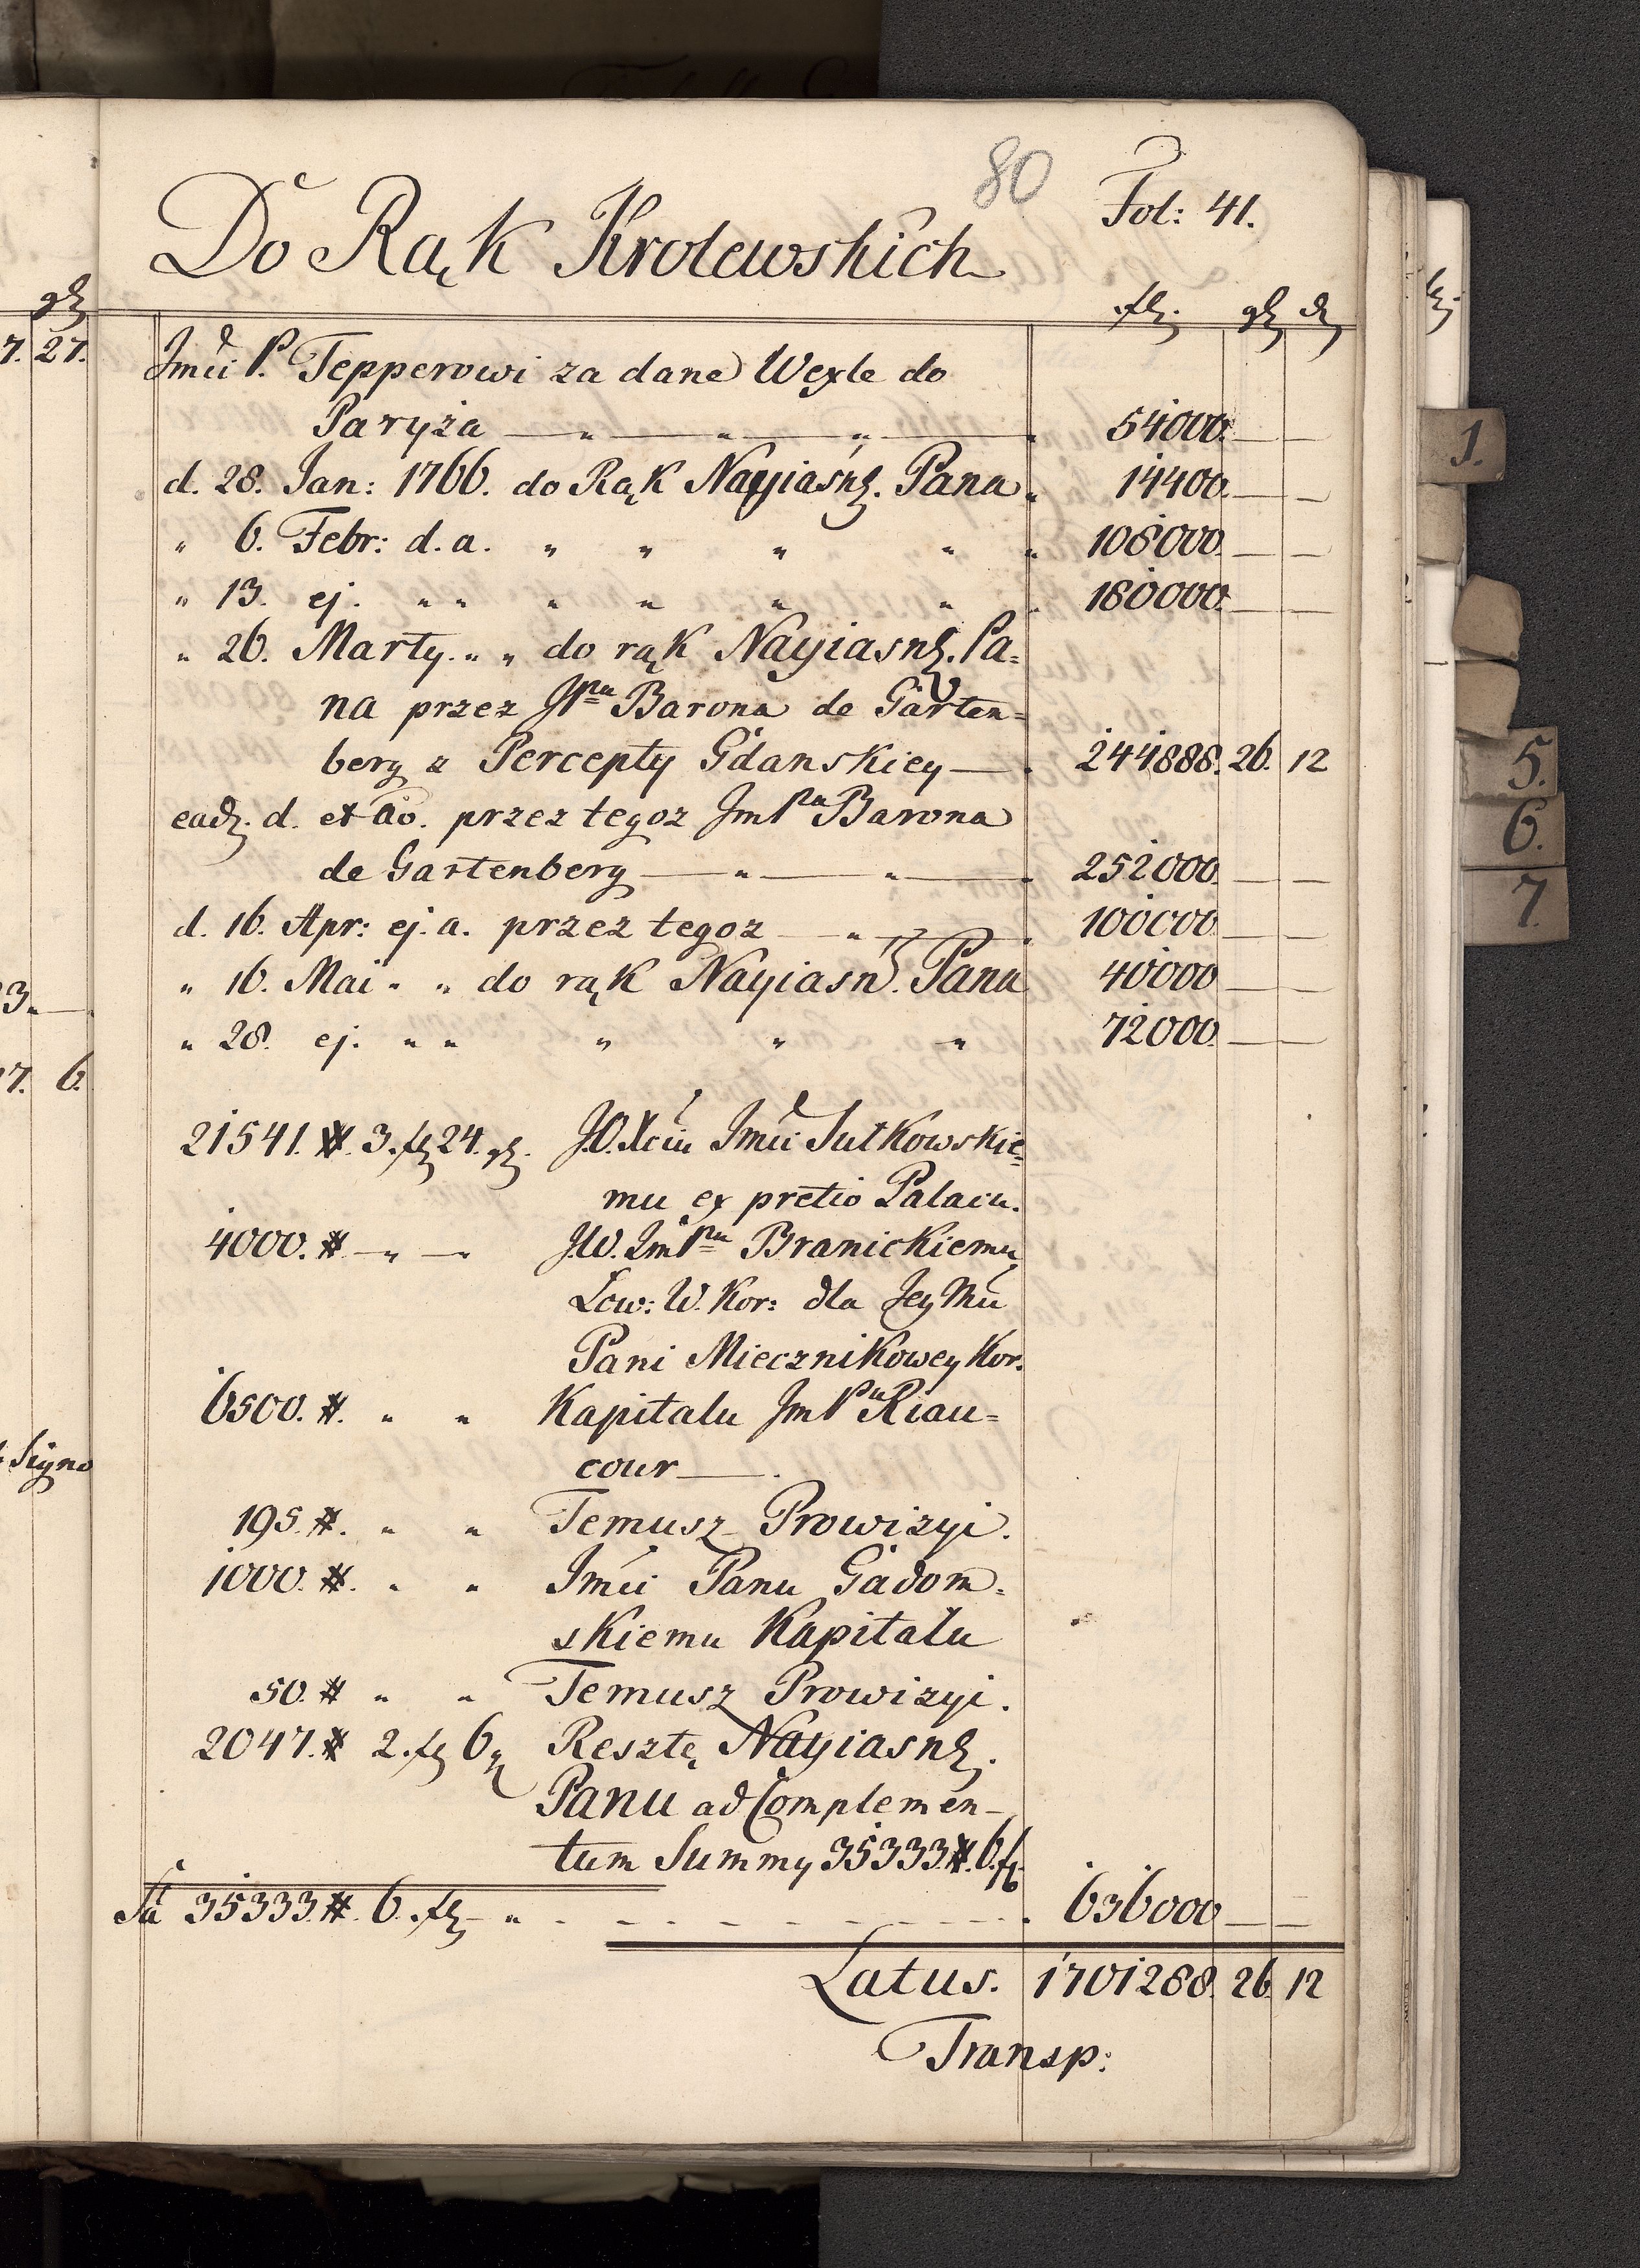 80
Fol: 41.
Do Rąk Krolewskich
fl. gl d
Jmći P. Tepperowi za dane Wexle do
Paryża 54000.
d. 28. Jan: 1766. do Rąk Nayiaśn. Pana 14400.
" 6. Febr: d. a. " " " " 108000.
" 13. ej. " " " " " " 180000.
" 26. Marty. " " do rąk Nayiasn. Pa=
na przez JPna Barona de Garten=
berg z Percepty Gdanskiey 244888. 26. 12
eadz. d. et ao. przez tegoz JmPna Barona
de Gartenberg " " 252000.
d. 16. Apr: ej. a. przez tegoz " 100000.
" 16. Mai " " do rąk Nayiasn. Pana 40000
" 28. ej. " " " " " 72000.
21541. # 3. fl 24. gl. J.O. Xciu Jmći Sułkowskie=
mu ex pretio Palacu.
4000. # " J.W. JmPnu Branickiemu
Low: W. Kor: dla Jey Mći
Pani Miecznikowey Kor.
6500. #. " " Kapitalu JmPu Riau=
cour
195. #. " " Temusz Prowizyi.
1000. #. " " Jmći Panu Gadom=
skiemu Kapitalu
50. # " " Temusz Prowizyi.
2047. # 2. fl 6 g Resztę Nayiasn.
Panu ad Complemen-
tum Summy 35333 #. 6. fl.
Sa 35333 #. 6. fl. " 636000
Latus. 1701288. 26. 12
Transp:
gl
7. 27.
3.
7. 6.
Signo
1.
5.
6.
7.